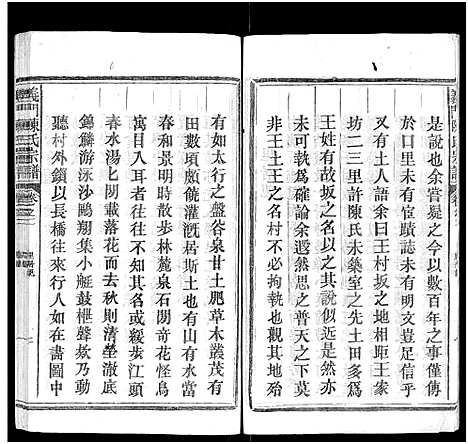 是說也余嘗疑之今以數百年之事僅傳
於口耳未有宦蹟誌書可考何足信乎
又有土人語余曰王村坂之地相距王家
坊一二三里許陳氏未築室之先土田多爲
王姓有故坂之名以之其說似近是余
未嘗與之辯論余遐然思之普天之下莫
非王土王之名不必拘執也其地殆
有如太行之盤谷泉甘土肥草木叢茂有
田數頃頗饒灌溉居斯土也有山有水當
春和景明時散步林麓泉石閒奇花怪鳥
寓目入耳者往往不知其名或緩步江頭
春水湯匕閒載落花而去秋則清瑩澈底
錦鱗游泳沙鷗翔集小艇鼓枻聲欸乃動
聽村外鎖以長橋往來行人如在畫圖中
義門陳氏宗譜
卷之